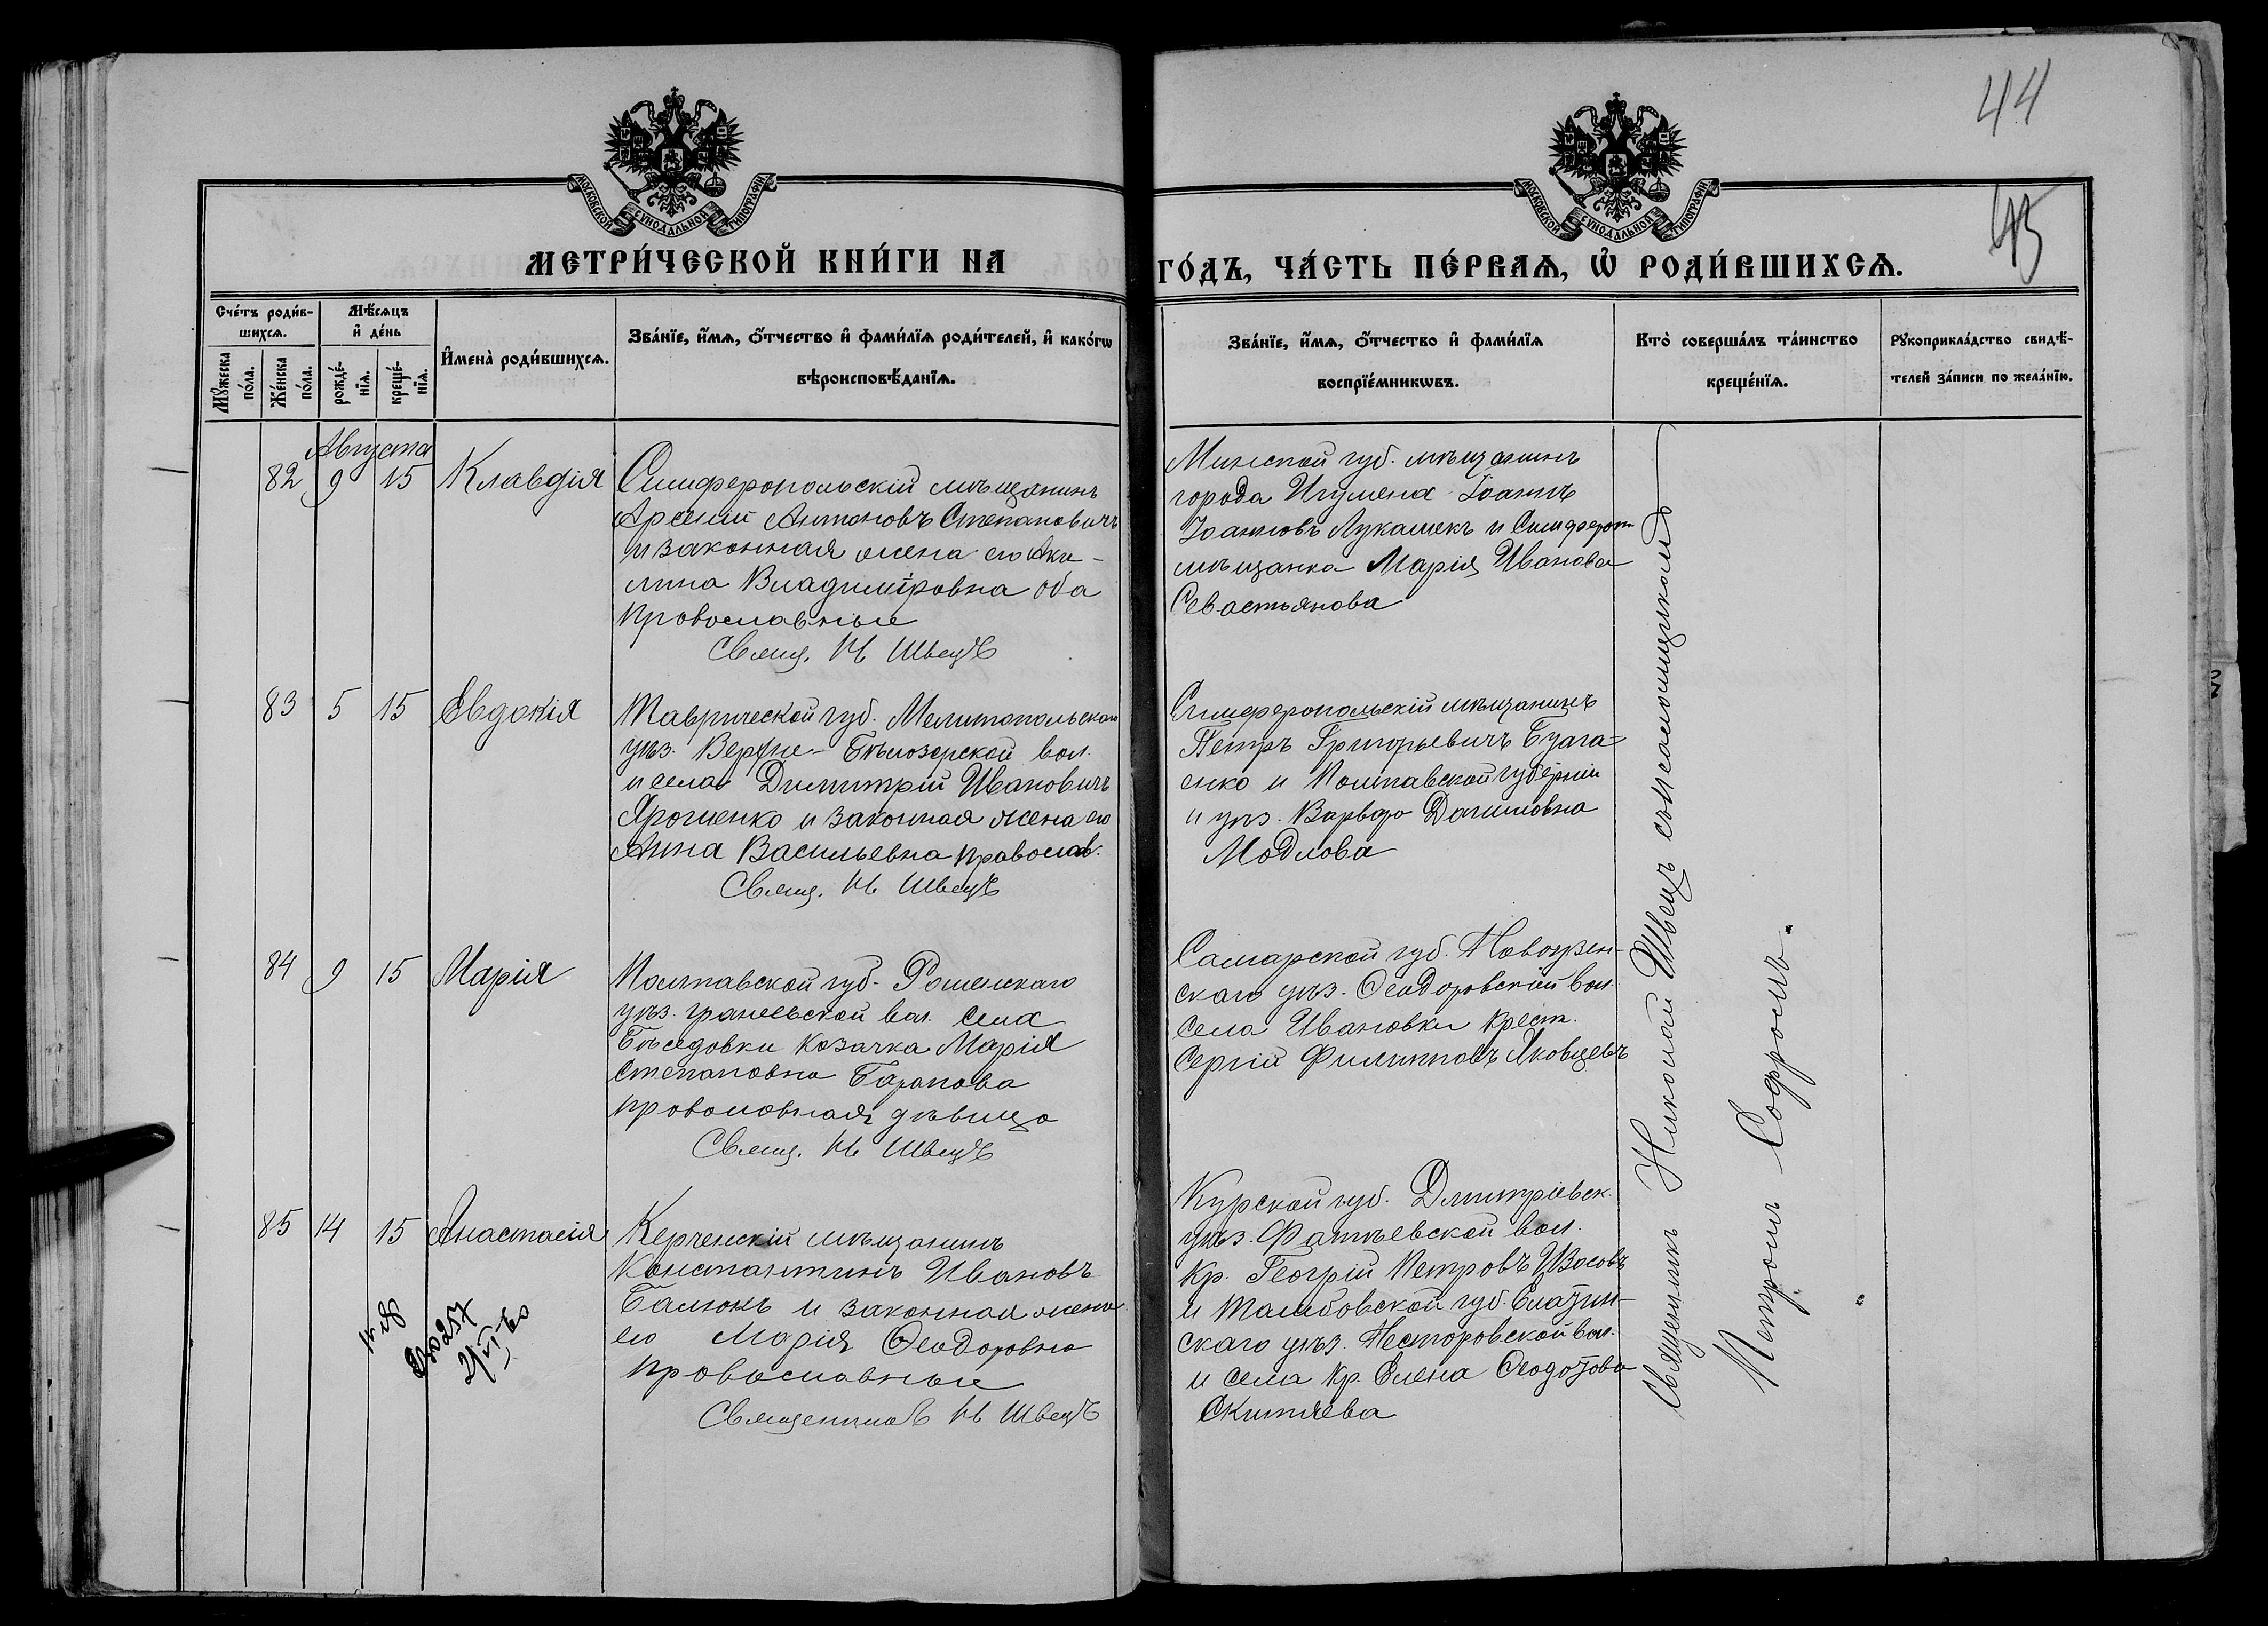 44
45
МОСКОВСКОЙ СѴНОДАЛЬНОЙ ТИПОГРАФІИ
МОСКОВСКОЙ СѴНОДАЛЬНОЙ ТИПОГРАФІИ
МЕТРИ́ЧЕСКОЙ КНИ́ГИ НА
ГО́ДЪ, ЧА́СТЬ ПЕ́РВАѦ, Ѽ РОДИ́ВШИХСѦ.
Сче́тъ роди́в-
шихсѧ.
Мꙋ́жеска по́ла.
Же́нска по́ла.
Мѣ́сѧцъ
и҆ де́нь
рожде́-
нїѧ.
креще́-
нїѧ.
И҆мена̀ роди́вшихсѧ.
Зва́нїе, и҆́мѧ, ѻ҆́тчество и҆ фами́лїѧ роди́телей, и҆ како́гѡ
вѣроисповѣ́данїѧ.
Зва́нїе, и҆́мѧ, ѻ҆́тчество и҆ фами́лїѧ
воспрїе́мникѡвъ.
Кто̀ соверша́лъ та́инство
креще́нїѧ.
Рꙋкоприкла́дство свидѣ́-
телей за́писи по жела́нїю.
Августа
82 9 15 Клавдія
Симферопольскій мѣщанинъ
Арсеній Антоновъ Степановичъ
и законная жена его Аки-
лина Владиміровна оба
православные
Свящ. Н Швецъ
Минской губ. мѣщанинъ
города Игумена Іоаннъ
Іоанновъ Лукашекъ и Симфероп.
мѣщанка Марія Иванова
Севастьянова
83 5 15 Евдокія
Таврической губ. Мелитопольскаго
уѣз. Верхне-Бѣлозерской вол.
и села Димитрій Ивановичъ
Ярошенко и законная жена его
Анна Васильевна православ.
Свящ. Н Швецъ
Симферопольскій мѣщанинъ
Петръ Григорьевичъ Бугаа-
енко и Полтавской губерніи
и уѣз. Варвара Даниловна
Модлова
84 9 15 Марія
Полтавской губ. Роменскаго
уѣз. вол. села
Бѣседовки козачка Марія
Степановна Баранова
православная дѣвица
Свящ. Н Швецъ
Самарской губ. Новоузен-
скаго уѣз. Ѳеодоровской вол.
села Ивановки крест.
Сергій Филипповъ Яковцевъ
85 14 15 Анастасія
Керченскій мѣщанинъ
Константинъ Ивановъ
Балюкъ и законная жена
его Марія Ѳеодоровна
православные
Священникъ Н Швецъ
Курской губ. Дмитріевск.
уѣз. Фатѣевской вол.
Кр. Георгій Петровъ
и Тамбовской губ.
скаго уѣз. Несторовской вол.
и села Кр. Елена
Скитяева
Священникъ Николай Швецъ съ псаломщикомъ
Петромъ Софросъ.